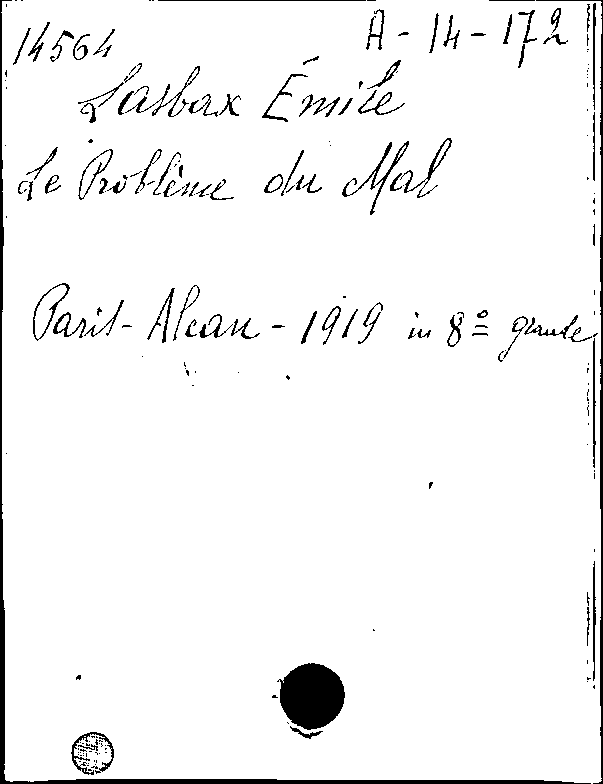 14564
A-14-172
Lasbax Émile
Le Problème du Mal
Paris-Alcan-1919 in 8º grande